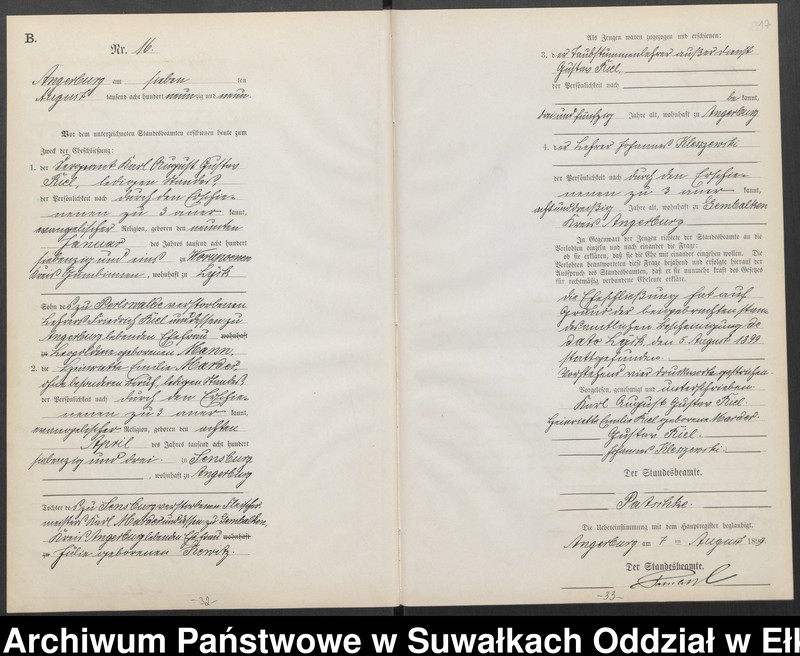 B.
Nr. 16.
Angerburg am sieben ten
August tausend acht hundert neunzig und neun.
Vor dem unterzeichneten Standesbeamten erschienen heute zum
Zweck der Eheschließung:
1. der Sergeant Karl August Gustav
Kiel, ledigen Standes,
der Persönlichkeit nach durch den Erschie-
nenen zu 3 aner kannt,
evangelischer Religion, geboren den neunten
Januar des Jahres tausend acht hundert
siebenzig und eins zu
Kreis Gumbinnen, wohnhaft zu Lyck
Sohn des zu verstorbenen
Lehrers Friedrich Kiel und dessen zu
Angerburg lebenden Ehefrau wohnhaft
zu Leopoldine geborenen Mann.
2. die Henriette Emilie Marder,
ohne besonderen Beruf, ledigen Standes
der Persönlichkeit nach durch den Erschie-
nenen zu 3 aner kannt,
evangelischer Religion, geboren den achten
April des Jahres tausend acht hundert
siebenzig und drei zu Sensburg
, wohnhaft zu Angerburg
Tochter des zu Sensburg verstorbenen Fleischer
meisters Karl Marder und dessen zu Gembalken,
Kreis Angerburg lebenden Ehefrau wohnhaft
zu Julie geborenen
-32-
Als Zeugen waren zugezogen und erschienen:
3. der Taubstummenlehrer außer Dienst
Gustav Kiel,
der Persönlichkeit nach
be kannt,
drei und fünfzig Jahre alt, wohnhaft zu Angerburg
4. der Lehrer Johannes Kleszewski
der Persönlichkeit nach durch den Erschie-
nenen zu 3 aner kannt,
acht und dreißig Jahre alt, wohnhaft zu Gembalken
Kreis Angerburg
In Gegenwart der Zeugen richtete der Standesbeamte an die
Verlobten einzeln und nach einander die Frage:
ob sie erklären, daß sie die Ehe mit einander eingehen wollen. Die
Verlobten beantworteten diese Frage bejahend und erfolgte hierauf der
Ausspruch des Standesbeamten, daß er sie nunmehr kraft des Gesetzes
für rechtmäßig verbundene Eheleute erkläre.
die Eheschließung hat auf
Grund der beigebrachten stan
desamtlichen Bescheinigung de
dato Lyck den 5. August 1899
stattgefunden.
Vorstehend vier Druckworte gestrichen.
Vorgelesen, genehmigt und unterschrieben
Karl August Gustav Kiel
Henriette Emilie Kiel geborene Marder.
Gustav Kiel.
Johannes Kleszewski.
Der Standesbeamte.
Patschke.
Die Uebereinstimmung mit dem Hauptregister beglaubigt.
Angerburg am 7 ten August 1899.
Der Standesbeamte.
-33-
Archiwum Państwowe w Suwałkach Oddział w Ełk